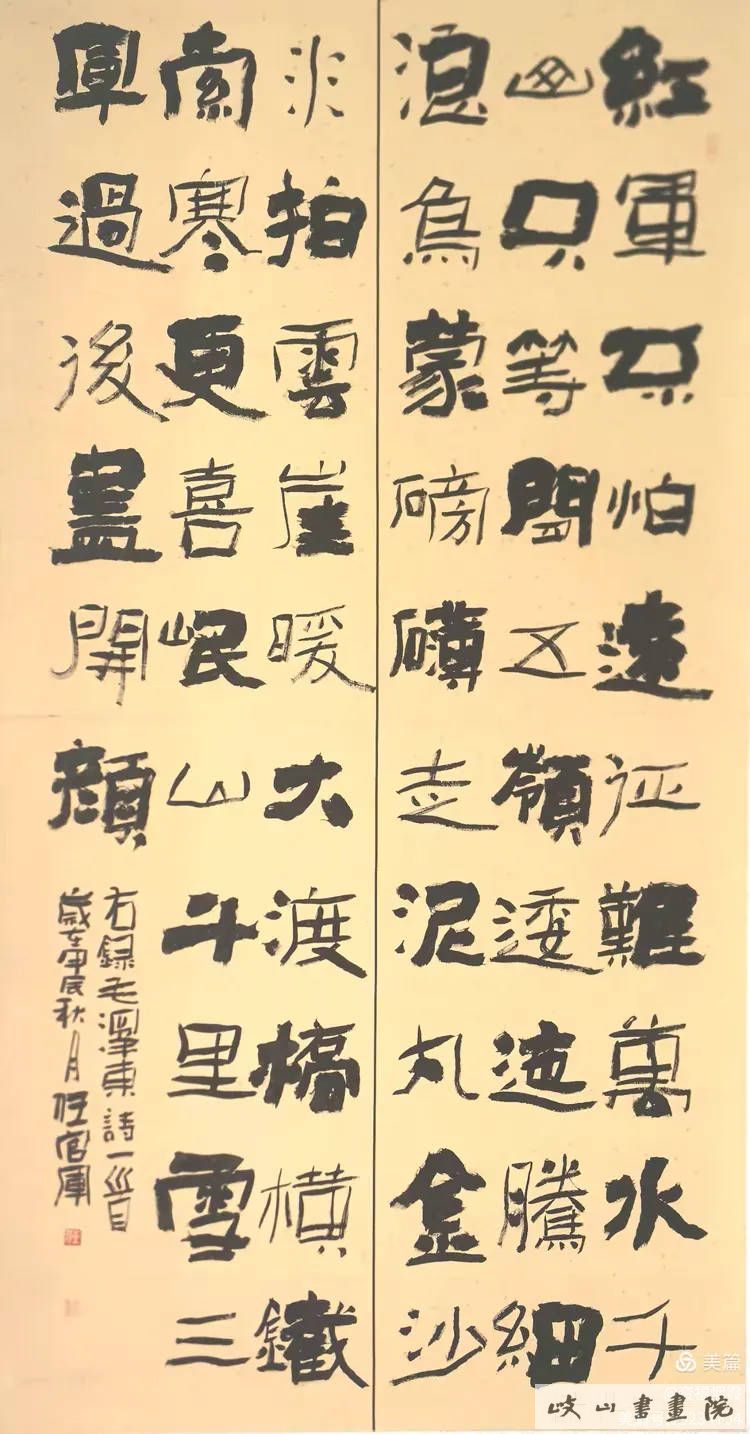 紅軍不怕遠征難萬水千
山只等閑五嶺逶迤騰細
浪烏蒙磅礴走泥丸金沙
水拍雲崖暖大渡橋橫鐵
索寒更喜岷山千里雪三
軍過後盡開顏
右錄毛澤東詩一首
歲在甲辰秋月任官軍
美篇
岐山書畫院